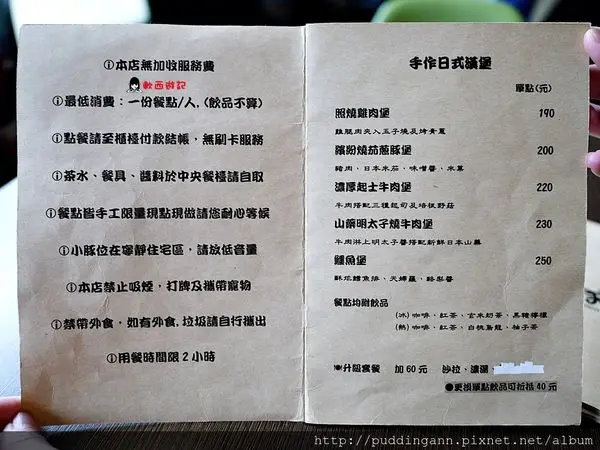 ⓘ本店無加收服務費
軟西遊記
ⓘ最低消費：一份餐點/人, (飲品不算)
ⓘ點餐請至櫃檯付款結帳，無刷卡服務
ⓘ茶水、餐具、醬料於中央餐檯請自取
ⓘ餐點皆手工限量現點現做請您耐心等候
ⓘ小豚位在寧靜住宅區，請放低音量
ⓘ本店禁止吸煙，打牌及攜帶寵物
ⓘ禁帶外食，如有外食, 垃圾請自行攜出
ⓘ用餐時間限2小時
手作日式漢堡
單點(元)
照燒雞肉堡 190
雞腿肉夾入玉子燒及烤青蔥
繽紛燒茄蔥豚堡 200
豬肉、日本米茄、味噌醬、水菓
濃厚起士牛肉堡 220
牛肉搭配三種起司及培根野菇
山藥明太子燒牛肉堡 230
牛肉淋上明太子醬搭配新鮮日本山藥
鱈魚堡 250
酥炸鱈魚排、天婦羅、酪梨醬
餐點均附飲品
(冰) 咖啡、紅茶、玄米奶茶、黑糖檸檬
(熱) 咖啡、紅茶、白桃烏龍、柚子茶
升級套餐 加60元 沙拉、濃湯、
●更換單點飲品可折抵40元
http://puddingann.pixnet.net/album